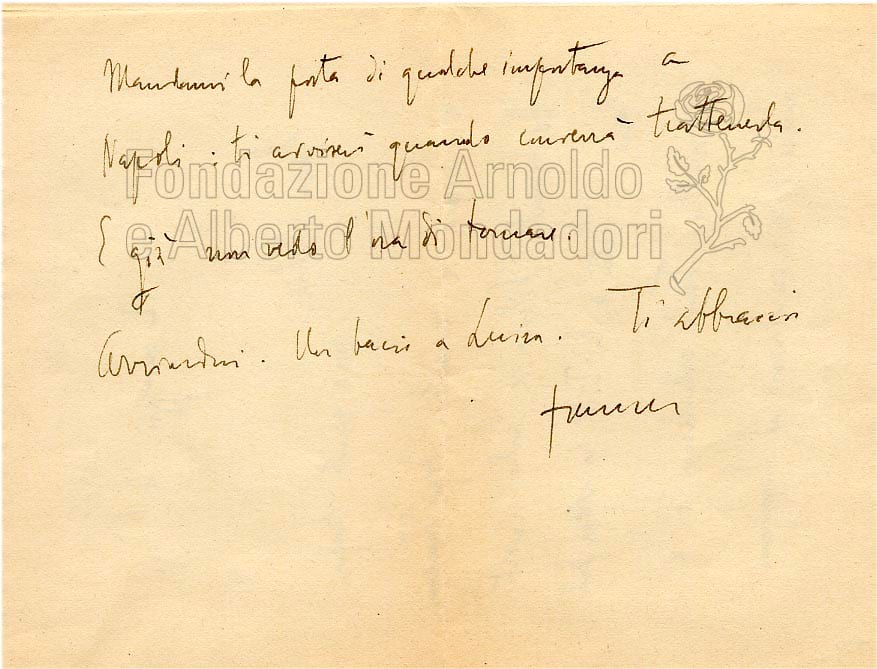 Mandami la posta di qualche importanza a
Napoli: ti avviserò quando converrà trattenerla.
Fondazione Arnoldo
e Alberto Mondadori
E già non vedo l'ora di tornare.
Arrivederci. Un bacio a Luisa. Ti abbraccio